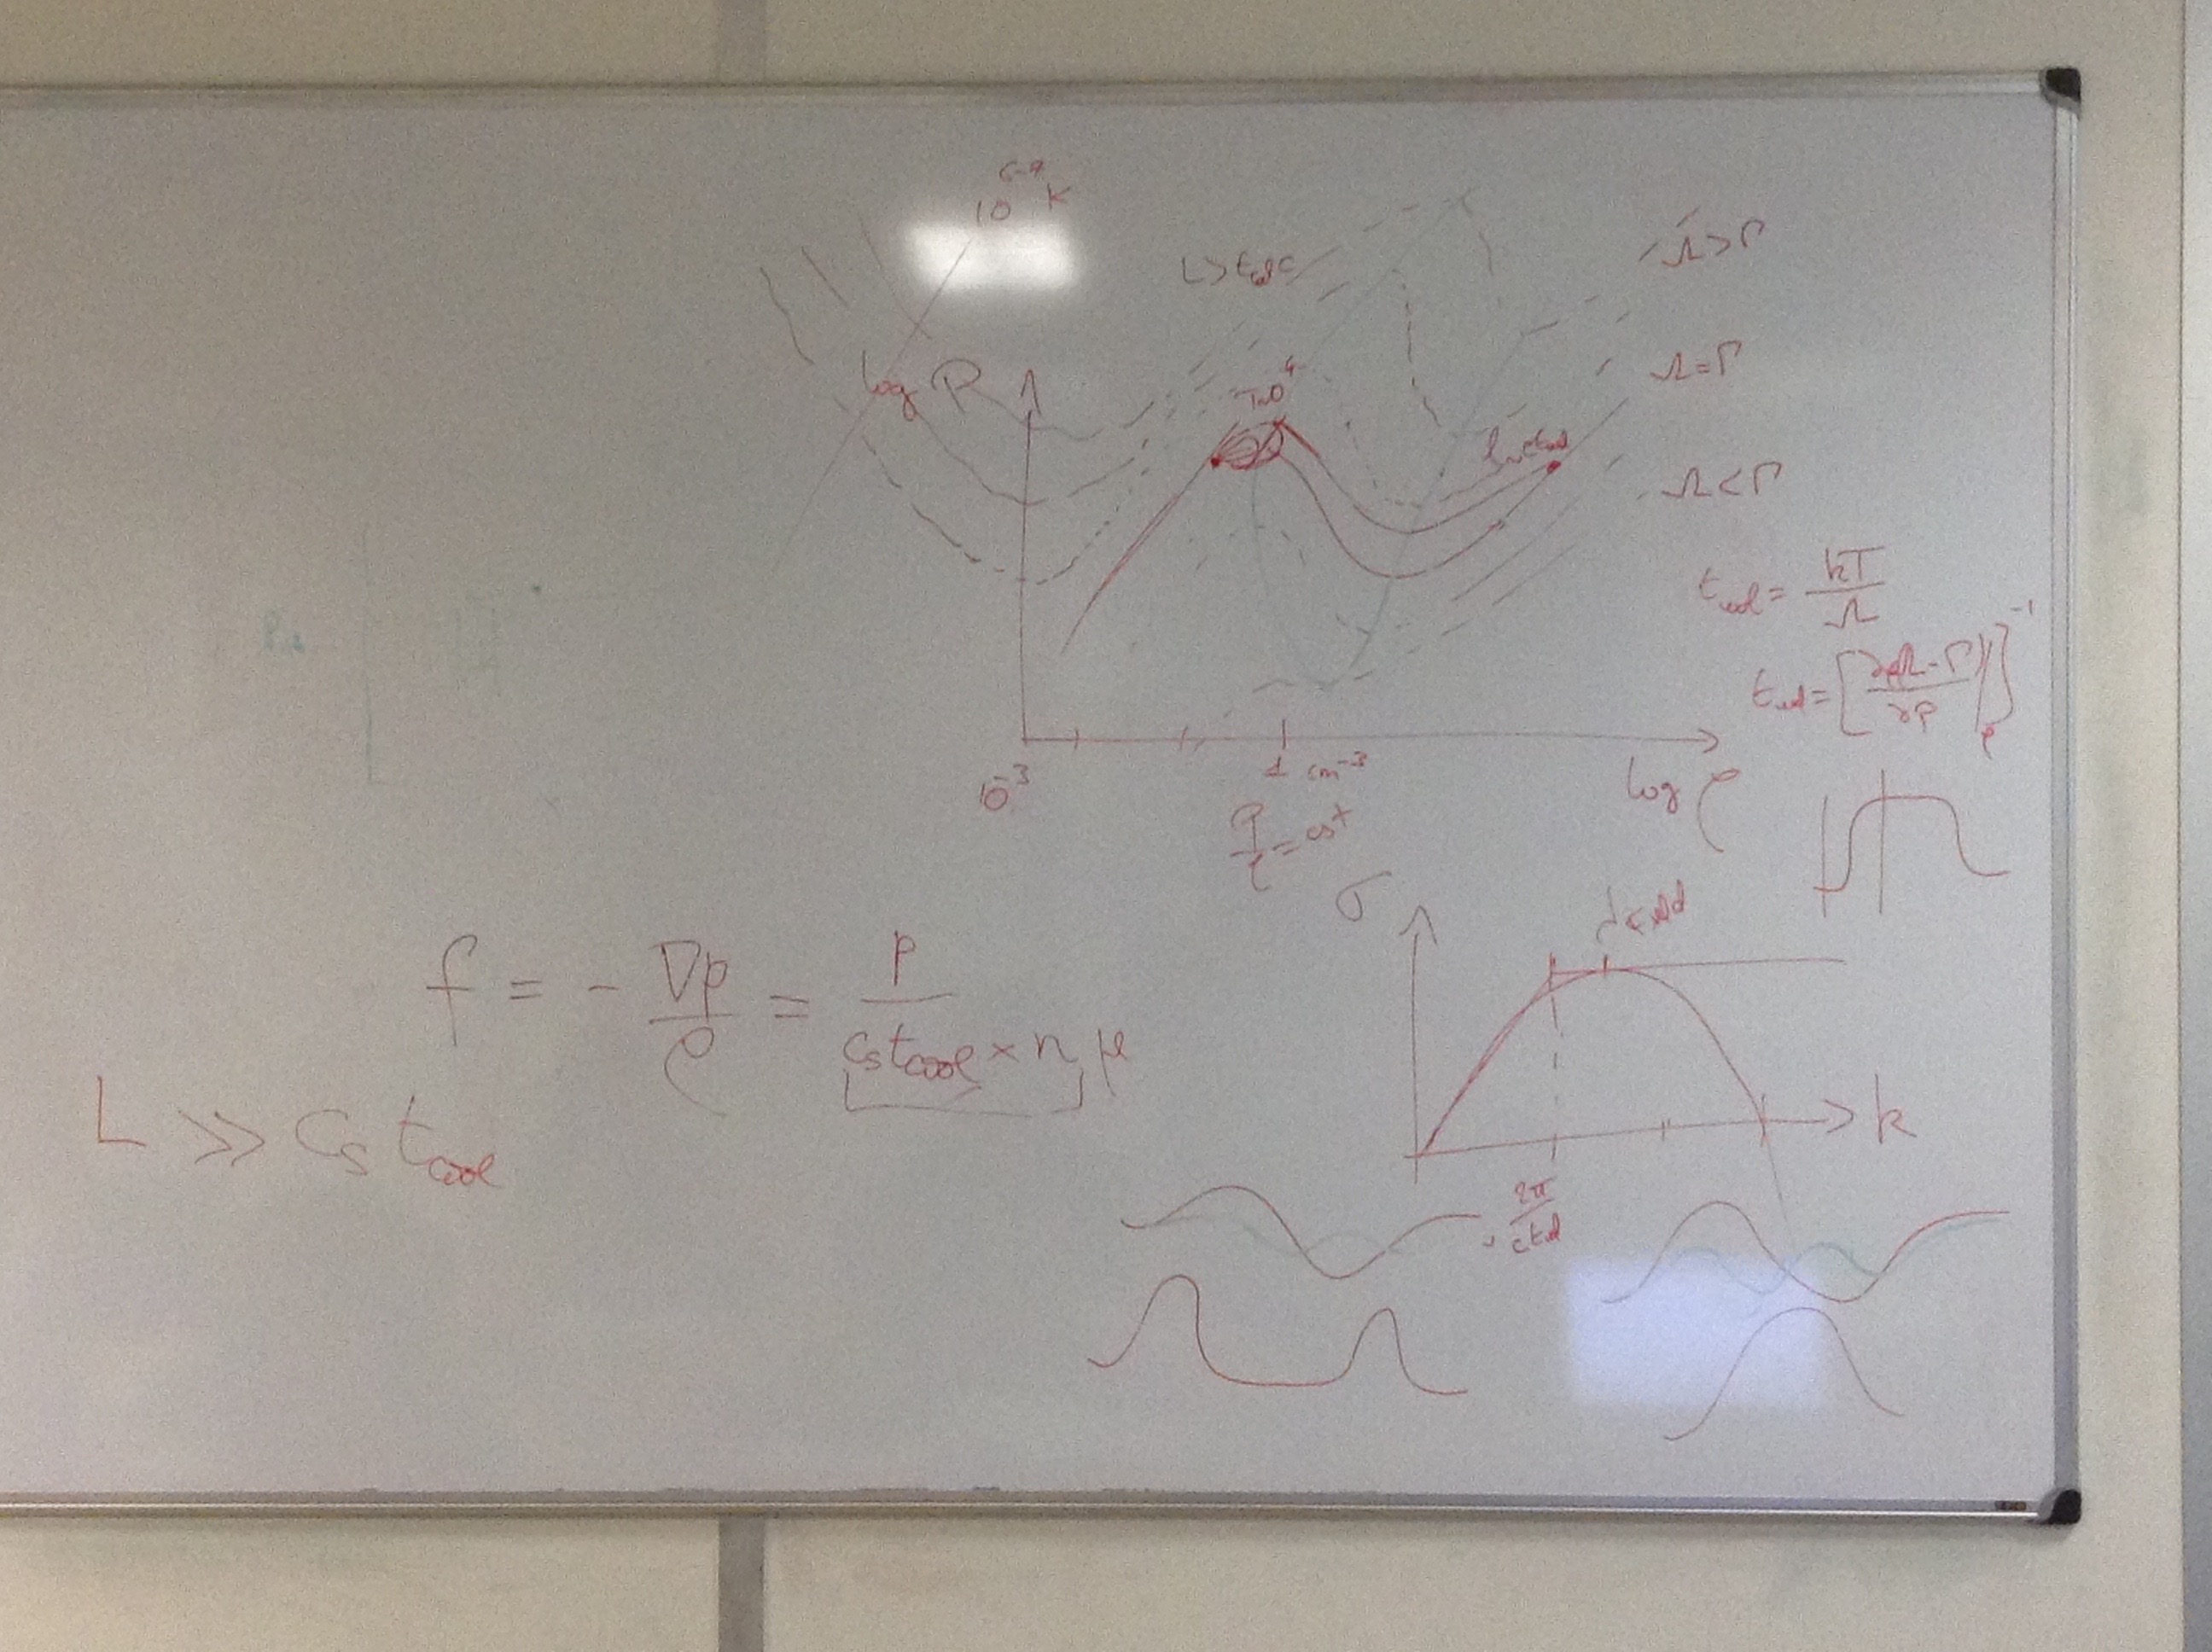 10^{6-7} K
L > t_{cool} c
Λ > Γ
log P
T~10^4
Λ = Γ
l ~ c t_{cool}
Λ < Γ
t_{cool} = kT / Λ
t_{cool} = [ ∂ρΛ-Γ / ∂P |_ρ ]^{-1}
10^{-3}
1 cm^{-3}
log ρ
P / ρ = cst
σ
λ_{Field}
f = - ∇p / ρ = p / c_s t_{cool} × n μ
L >> c_s t_{cool}
k
2π / c t_{cool}